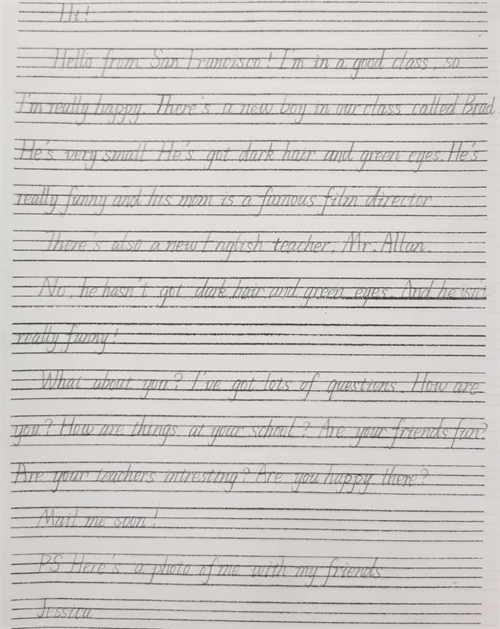 Hi!
Hello from San Francisco! I'm in a good class, so
I'm really happy. There's a new boy in our class called Brad
He's very small He's got dark hair and green eyes. He's
really funny and his mom is a famous film director
There's also a new English teacher, Mr. Allan.
No, he hasn't got dark hair and green eyes. And he isn't
really funny!
What about you? I've got lots of questions. How are
you? How are things at your school? Are your friends fun?
Are your teachers intresting? Are you happy there?
Mail me soon!
PS Here's a photo of me with my friends
Jessica